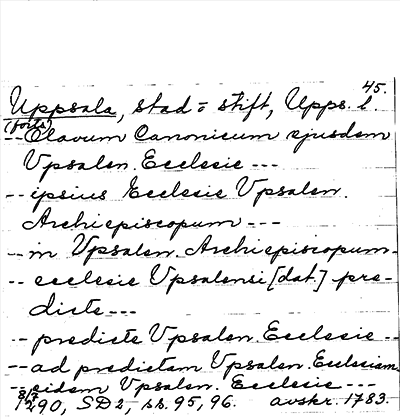 45.
Uppsala, stad o. stift, Upps. l.
(forts)
-- Olavum Canonicum ejusdem
Vpsalen. Ecclesie ---
-- ipsius Ecclesie Vpsalen.
Archiepiscopum ---
-- in Vpsalen. Archiepiscopum-
-- ecclesie Vpsalensi [dat.] pre-
dicte ---
-- predicte Vpsalen Ecclesie --
-- ad predictam Vpsalen. Ecclesiam
-- eidem Vpsalen. Ecclesie ---
8/7 1290, SD 2, s. 95, 96. avskr. 1783.